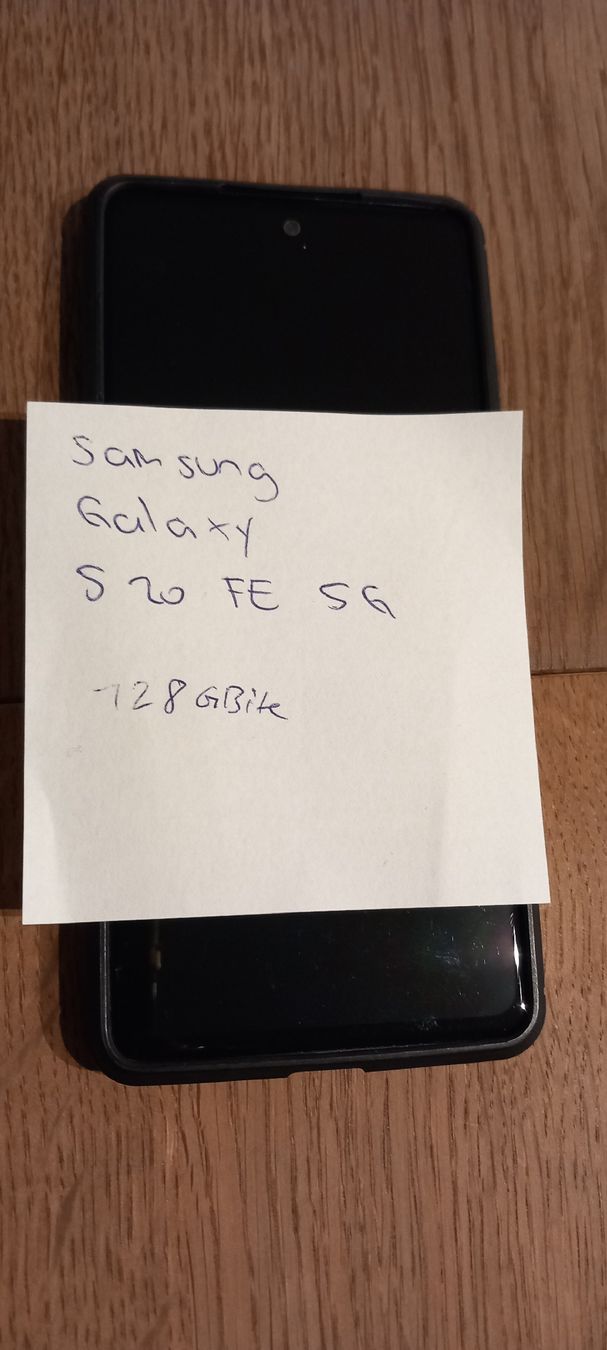 Samsung
Galaxy
S 20 FE 5G
128 GBite